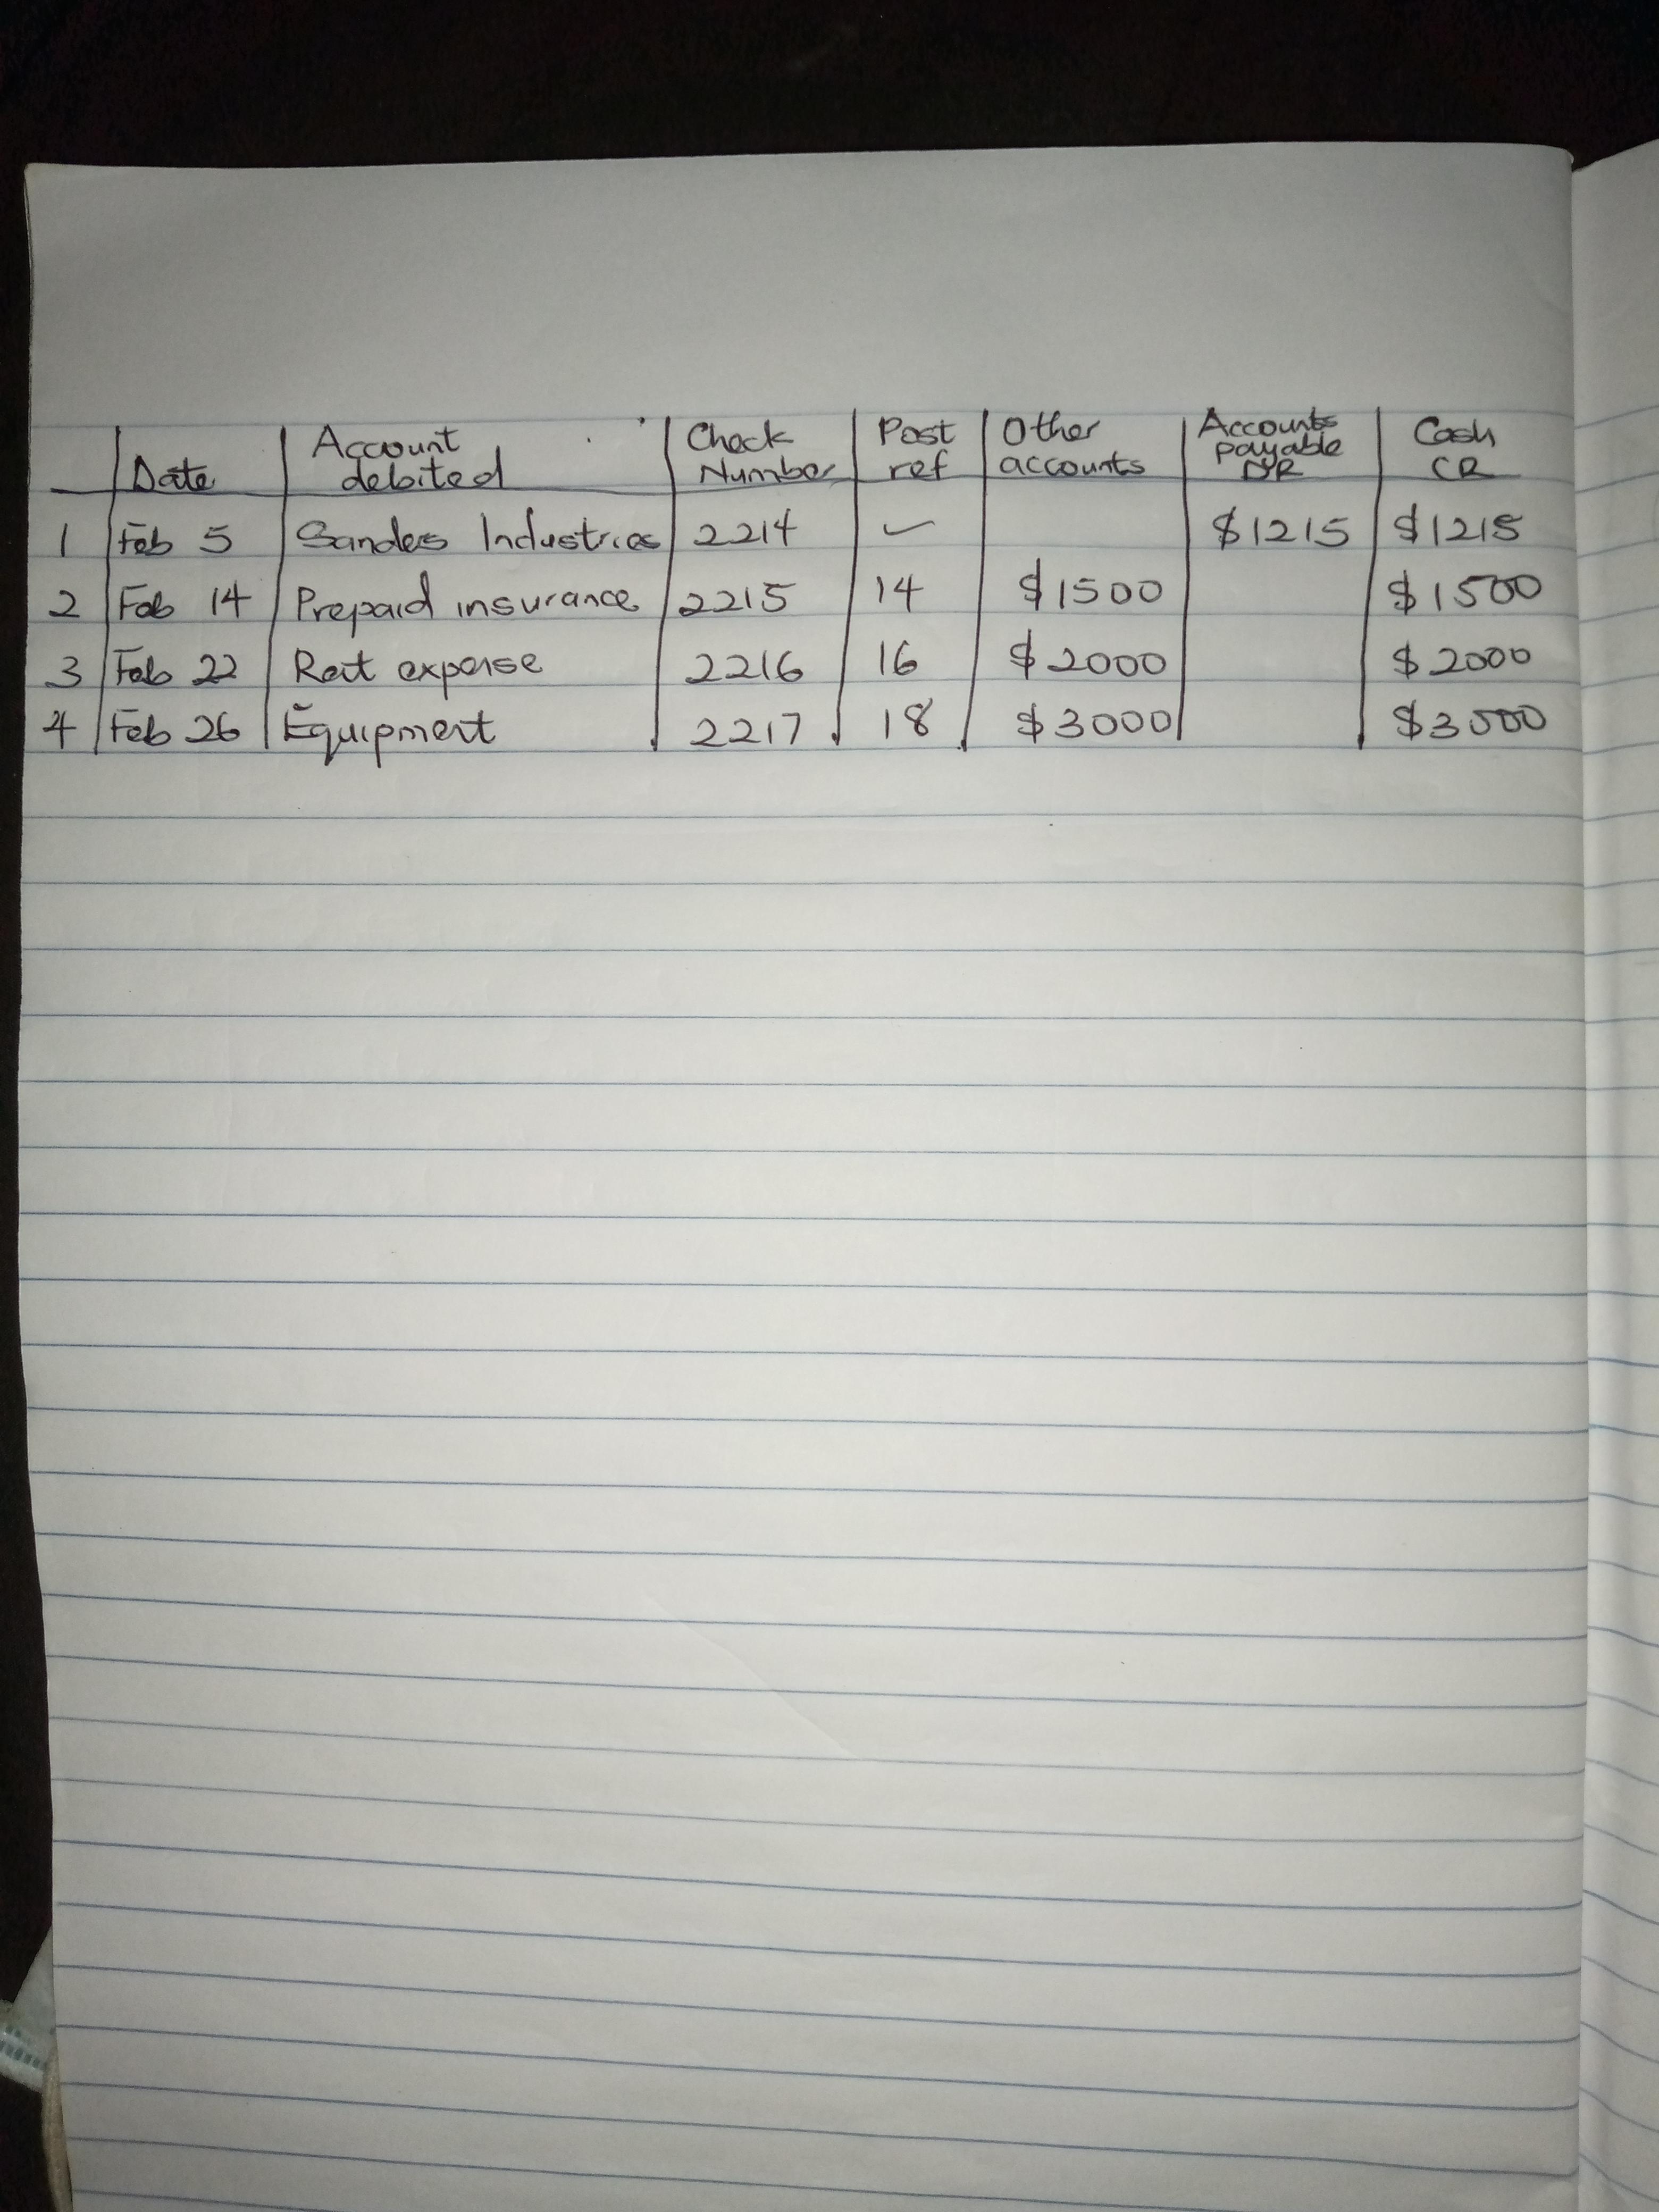 Date | Account debited | Check Number | Post ref | Other accounts | Accounts payable DR | Cash CR
1 | Feb 5 | Sanders Industries | 2214 | ✓ | | $1215 | $1215
2 | Feb 14 | Prepaid insurance | 2215 | 14 | $1500 | | $1500
3 | Feb 22 | Rent expense | 2216 | 16 | $2000 | | $2000
4 | Feb 26 | Equipment | 2217 | 18 | $3000 | | $3000